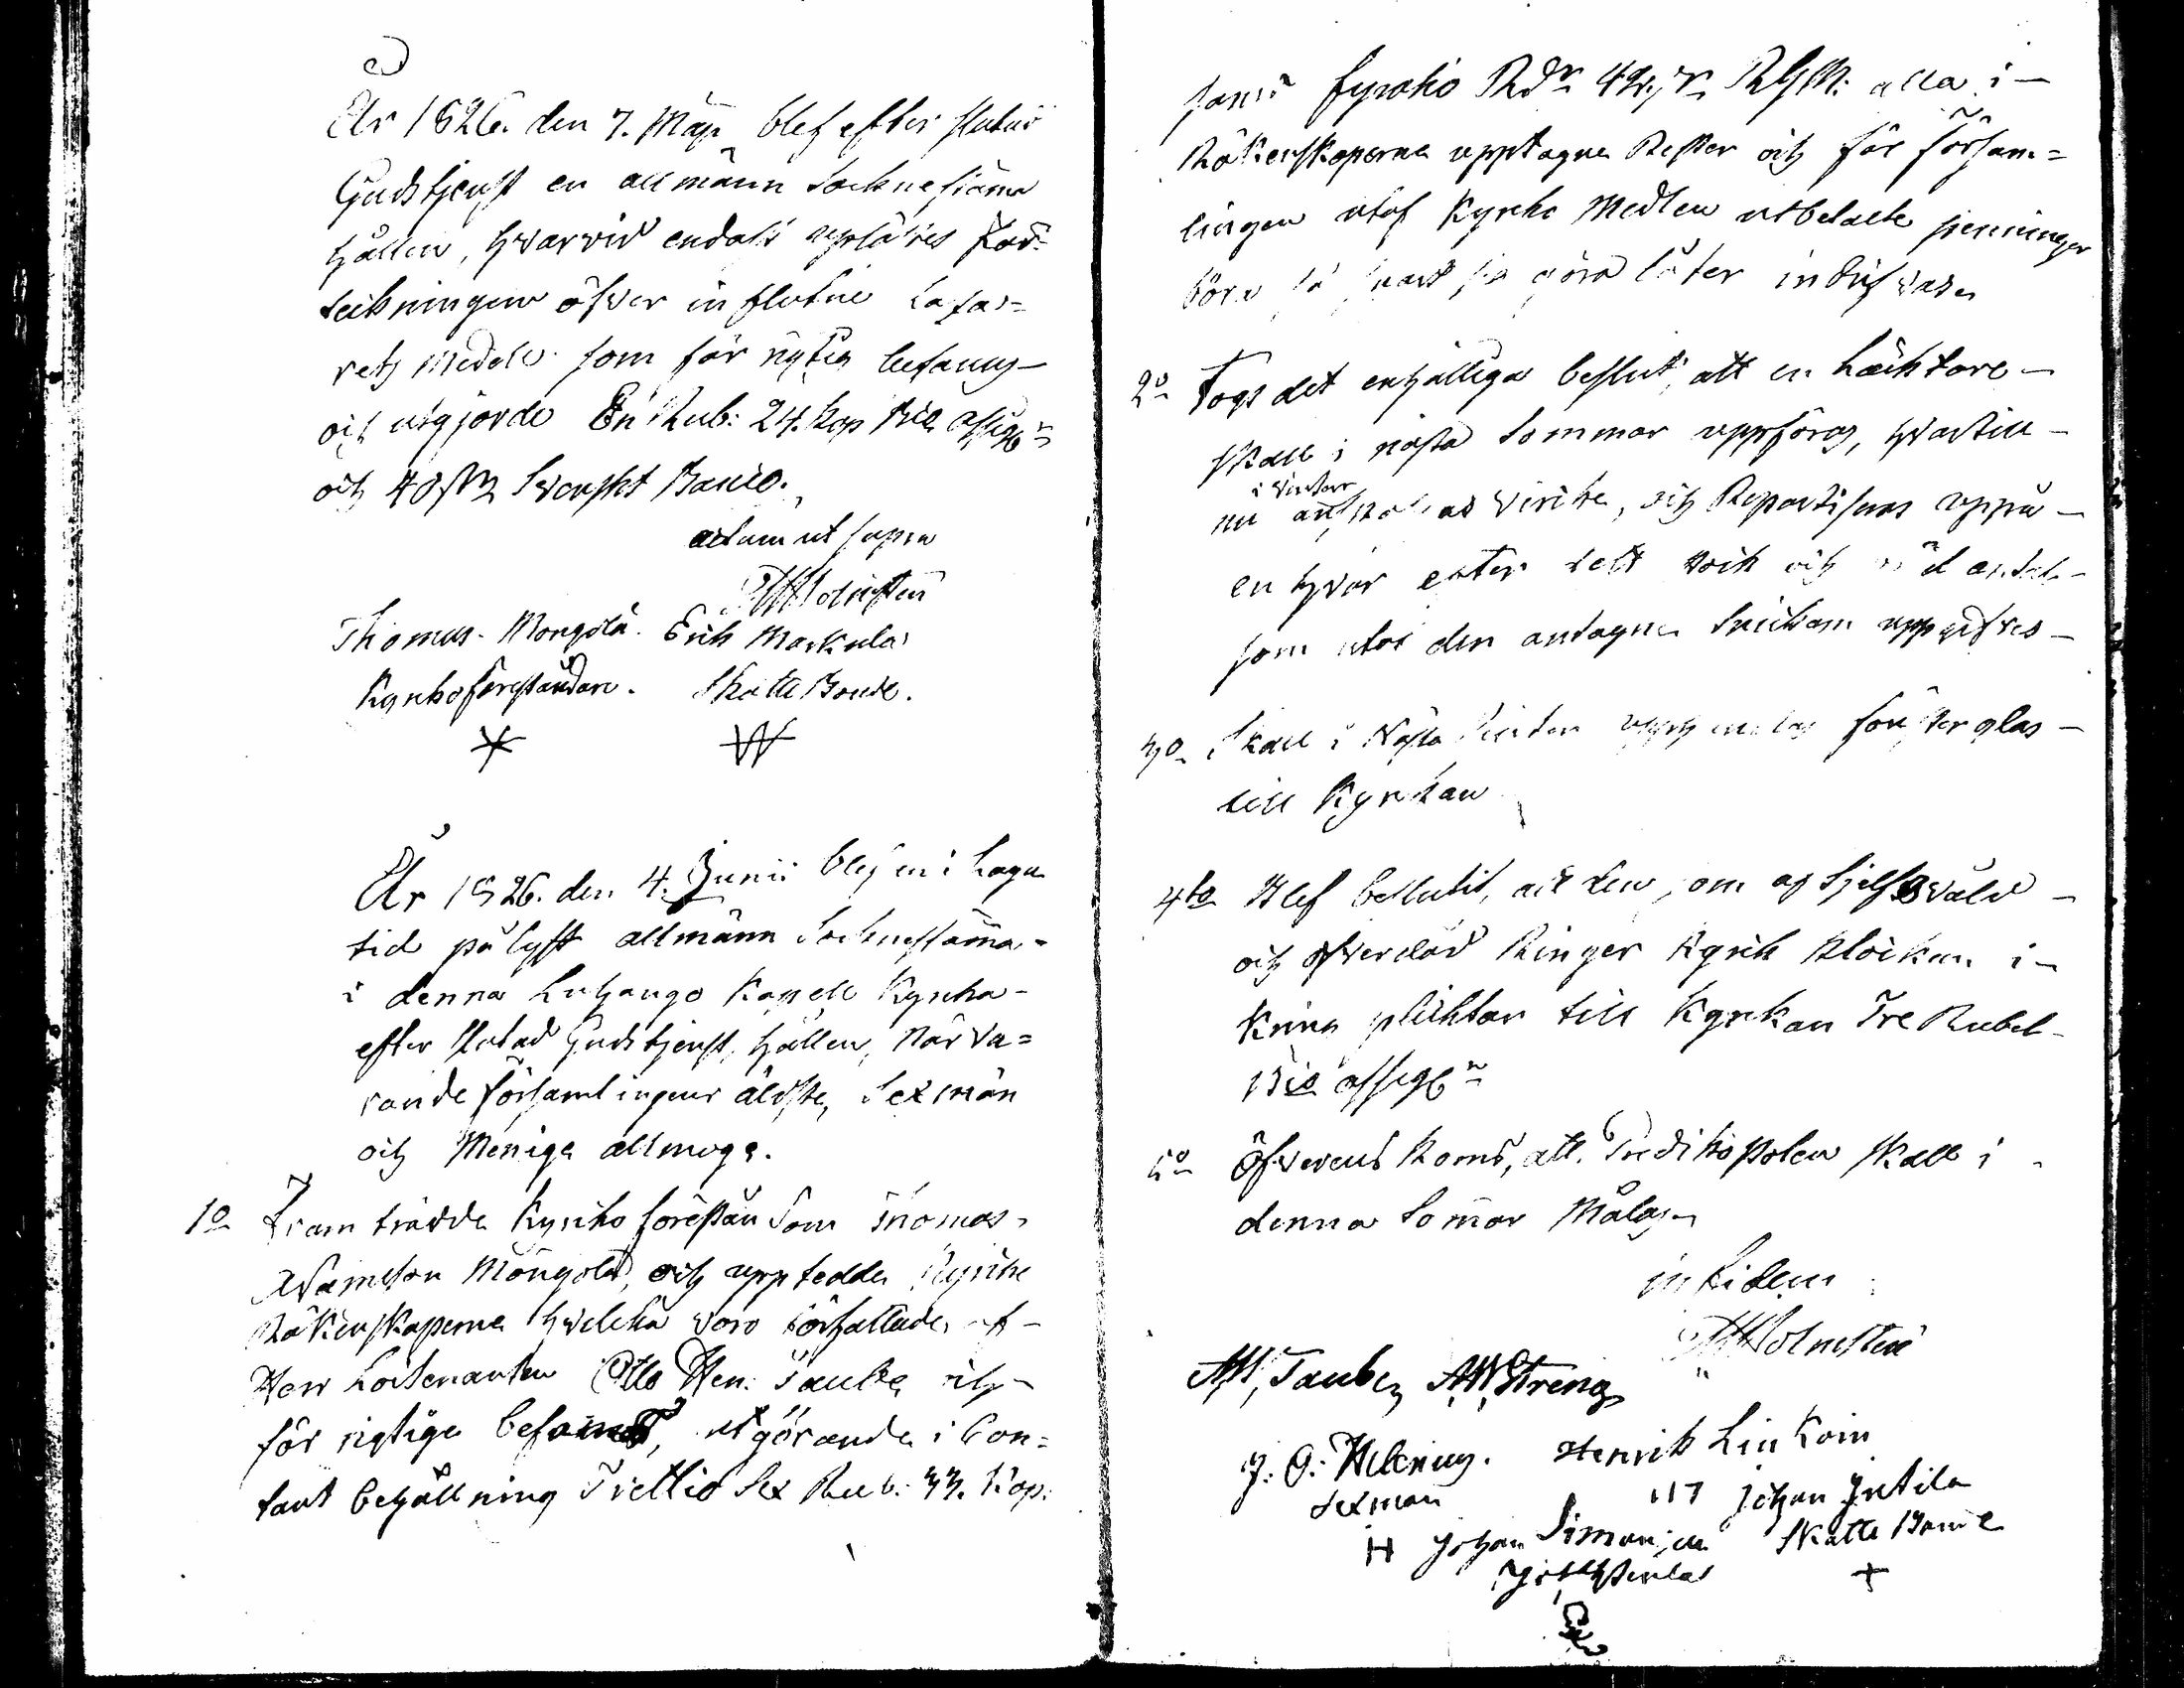 År 1826. den 7. Maji blef efter slutad
Gudstjenst en allmänn Sockne stämma
hållen, hvarvid endast uplästes För-
teckningen öfver influtne Lasa-
retz Medel. som för rigtig befanns
och utgjorde En Rub: 24. Kop Bco Assigr
och 40 ß Svenskt Banco.
actum ut supra
Holmsten
Thomas Mongola. Erik Markula
Kyrkoföreståndare. Skatte Bonde.
År 1826. den 4. Junii blef en i Laga
tid pålyst allmänn Sockne stämma
i denna Luhango Kapell Kyrka
efter slutad Gudstjenst, hållen, Närva=
rande församlingens äldste, Sexmän
och Meniga allmoge.
1o Fram trädde Kyrko föreståndarn Thomas
Adamsson Mongola, och upptedde Kyrko
Räkenskaperne hvilcka voro författade af
Herr Löjtenanten Otto Hen: Taube och
för rigtige befanns, utgörande i Con=
tant behållning Trettio Sex Rub: 33. Kop:
samt fyratio Rdr 42 ß r RGM: alla i
Räkenskaperne upptagne Rester och för försam=
lingen utaf Kyrko Medlen utbetalte penningar
böra så snart sig göra låter indrifvas
2o Togs det enhälliga beslut, att en Läcktare
skall i nästa Sommar uppföras, hvartill
i vinter
nu anskaffas Virke, och Repartiseras uppå
en hvar efter dess och
som utaf den antagne Snickarn uppgifves
3o Skall i Nästa Vinter fönster glas
till Kyrkan
4to Blef beslutit, att den, som af Sjelfsvåld
och öfverdåd Ringer Kyrk Klockan i
Kring plicktar till Kyrkan Tre Rubel
Bco assigr
5o Öfverens Koms, att Predikostolen skall i
denna Sommar Målas
in fidem
Holmsten
Taube AW Streng
J. G. Helenius. Henrik Linkoin
Sexman Johan Intila
Johan Simonson Skatte Bonde